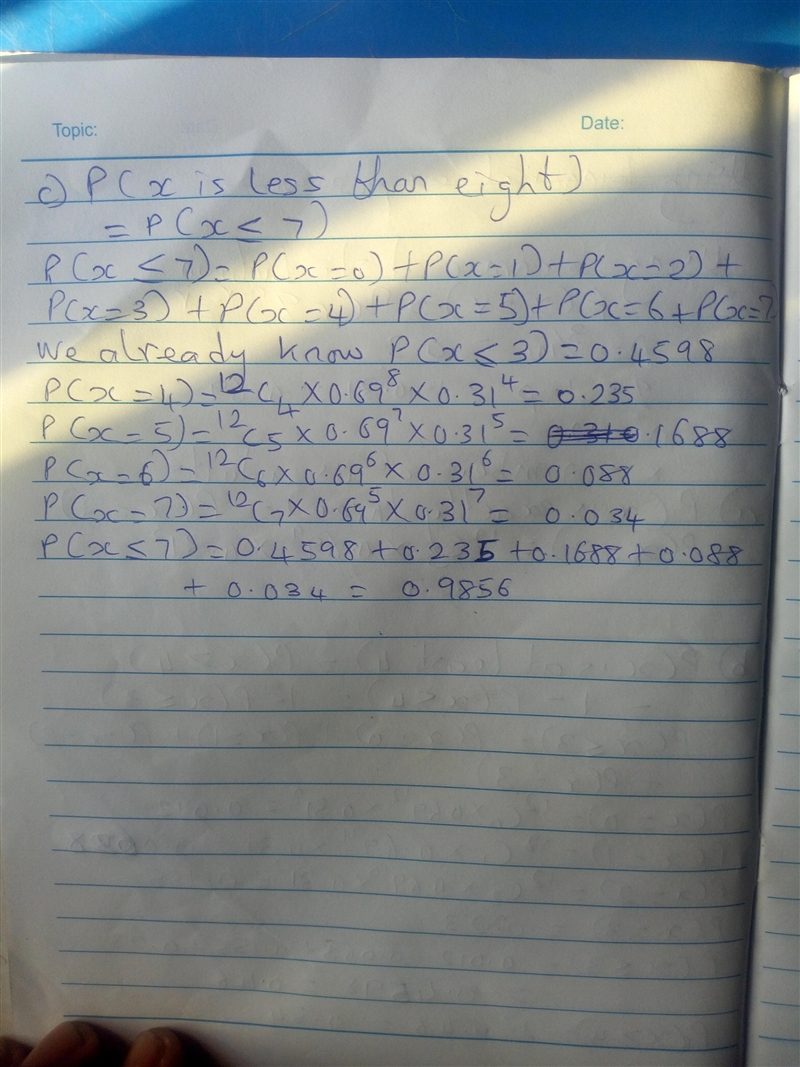 Topic: Date:
c) P(x is less than eight)
= P(x ≤ 7)
P(x ≤ 7) = P(x=0) + P(x=1) + P(x=2) +
P(x=3) + P(x=4) + P(x=5) + P(x=6 + P(x=7)
We already know P(x ≤ 3) = 0.4598
P(x=4) = ¹²C₄ × 0.69⁸ × 0.31⁴ = 0.235
P(x=5) = ¹²C₅ × 0.69⁷ × 0.31⁵ = 0.1688
P(x=6) = ¹²C₆ × 0.69⁶ × 0.31⁶ = 0.088
P(x=7) = ¹²C₇ × 0.69⁵ × 0.31⁷ = 0.034
P(x ≤ 7) = 0.4598 + 0.235 + 0.1688 + 0.088
+ 0.034 = 0.9856